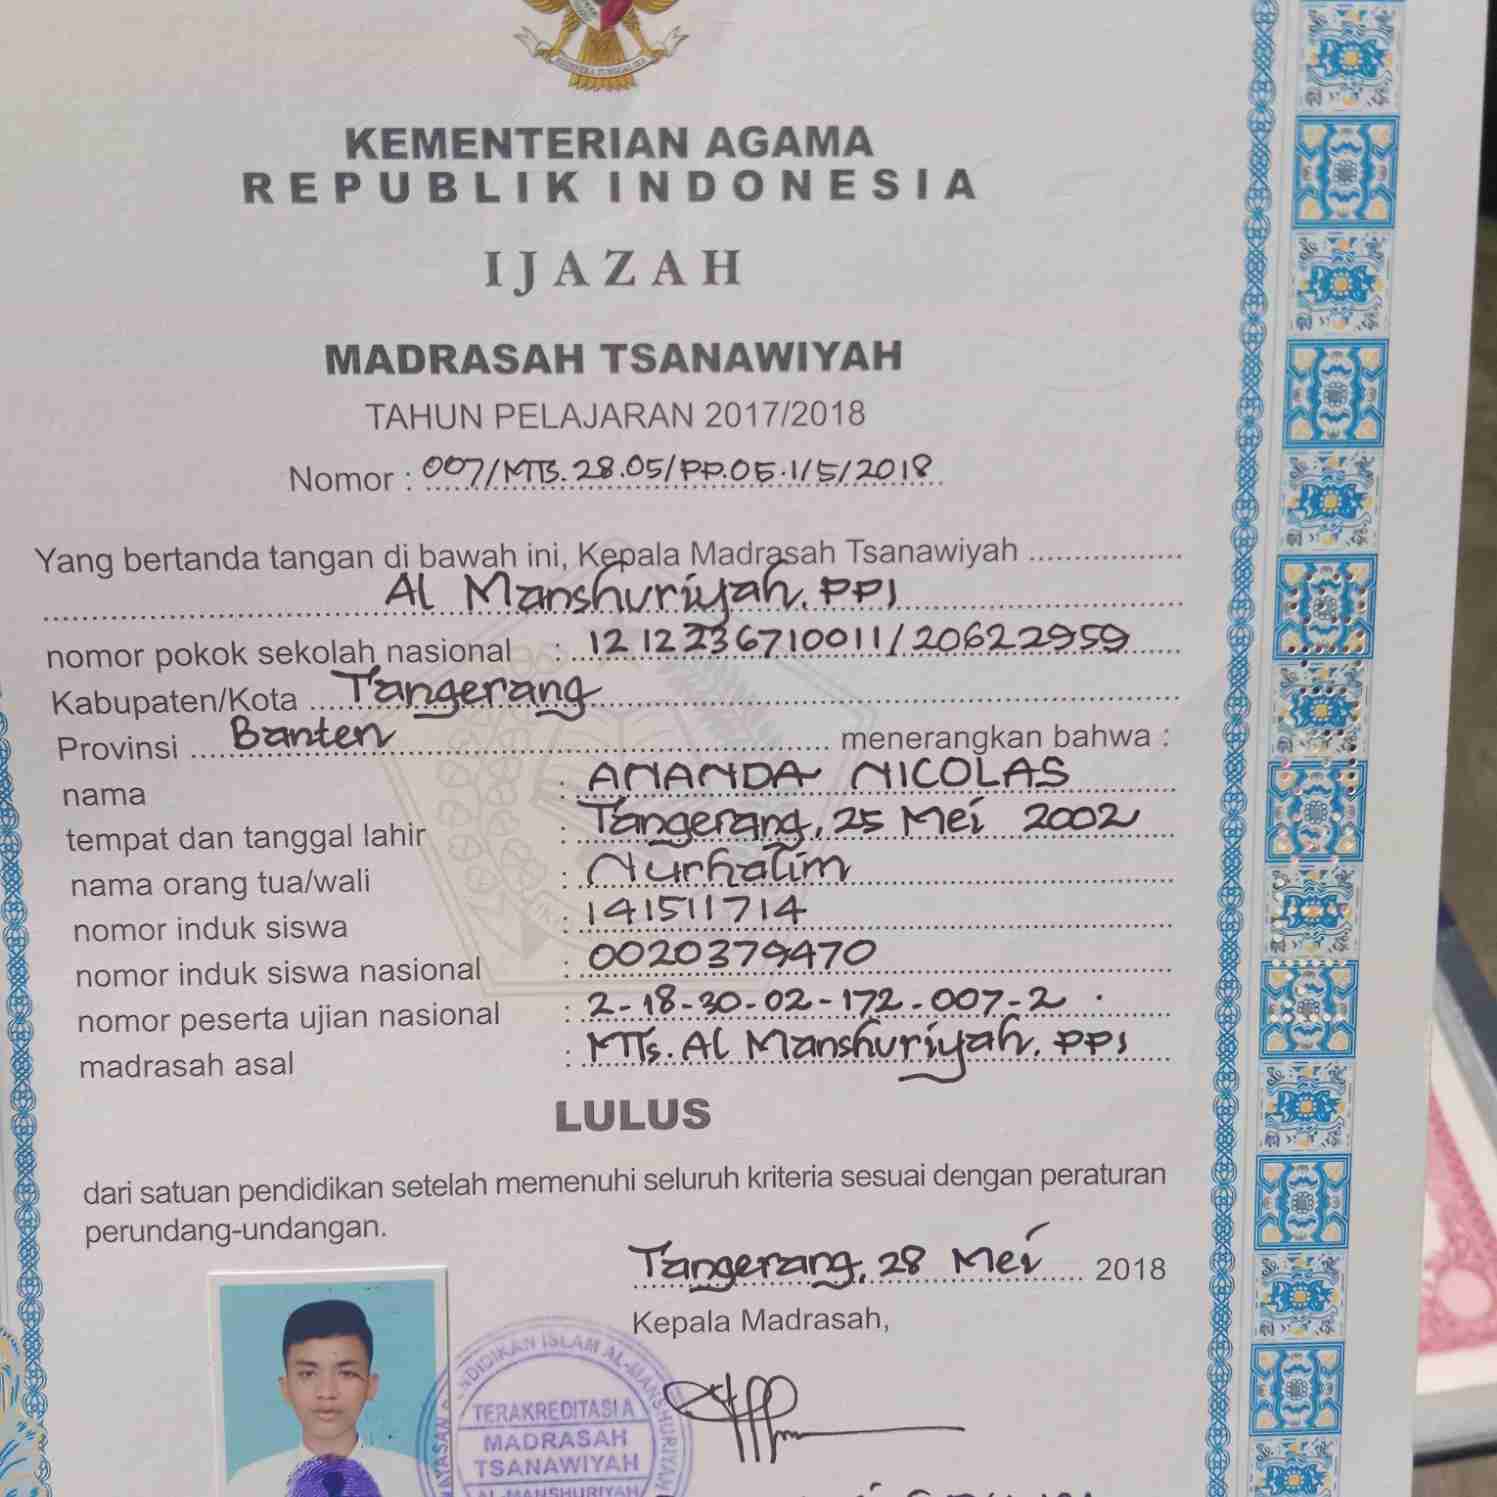 KEMENTERIAN AGAMA
REPUBLIK INDONESIA
IJAZAH
MADRASAH TSANAWIYAH
TAHUN PELAJARAN 2017/2018
Nomor : 007/MTs.28.05/PP.05.1/5/2018
Yang bertanda tangan di bawah ini, Kepala Madrasah Tsanawiyah
Al Manshuriyah. PPI
nomor pokok sekolah nasional : 1212236710011/20622959
Kabupaten/Kota Tangerang
Provinsi Banten menerangkan bahwa :
nama : ANANDA NICOLAS
tempat dan tanggal lahir : Tangerang, 25 Mei 2002
nama orang tua/wali : Nurhalim
nomor induk siswa : 141511714
nomor induk siswa nasional : 0020379470
nomor peserta ujian nasional : 2-18-30-02-172-007-2
madrasah asal : MTs. Al Manshuriyah. PPI
LULUS
dari satuan pendidikan setelah memenuhi seluruh kriteria sesuai dengan peraturan
perundang-undangan.
Tangerang, 28 Mei 2018
Kepala Madrasah,
YAYASAN PENDIDIKAN ISLAM AL-MANSHURIYAH
TERAKREDITASI A
MADRASAH
TSANAWIYAH
AL-MANSHURIYAH